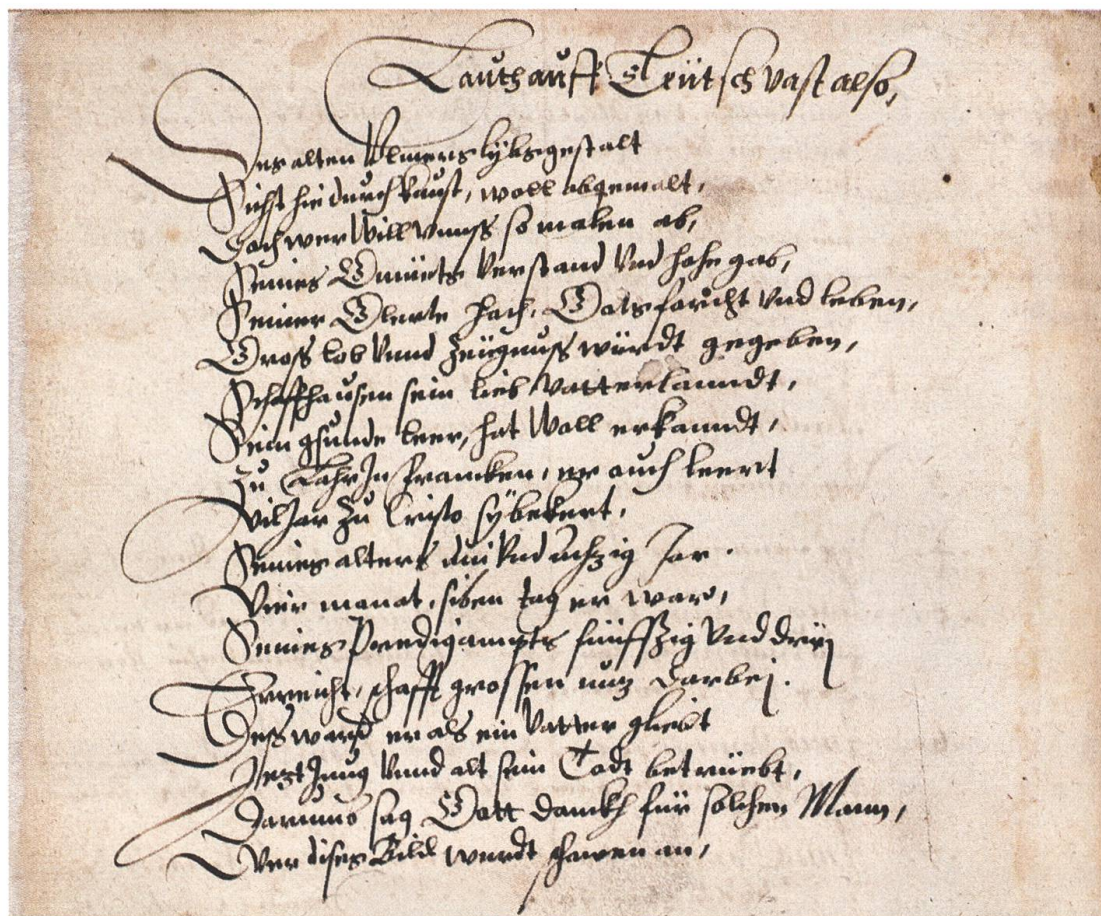 Lauth auff Teütsch vast also,
Des alten Ulmers lybsgestalt
Sichst hie durch kunst, woll abgemalt,
Doch wer will unnss so malen ab,
Seines Gmüets verstand und hohe gab,
Seiner Glerte hach, Gotsforcht und leben,
Gross lob unnd zeügnuss würdt gegeben,
Schaffhausen sein lieb vatterlanndt,
Sein gsunde leer, hat woll erkanndt,
Zu Lahr In francken, er auch leert
Vil Jar zu Cristo sÿ bekert,
Seines alters und achzig Jar.
Vier manat, siben tag er war,
Seines Predigampts fünffzig und drÿ
Erreicht, schafft grossen nutz darbej.
Dess ward er als ein Vatter gliebt
Jezt Jung unnd alt sein Todt betrüebt,
Darumb sag Gott danckh für solchen Mann,
Wer dises Bild wurdt schawen an,